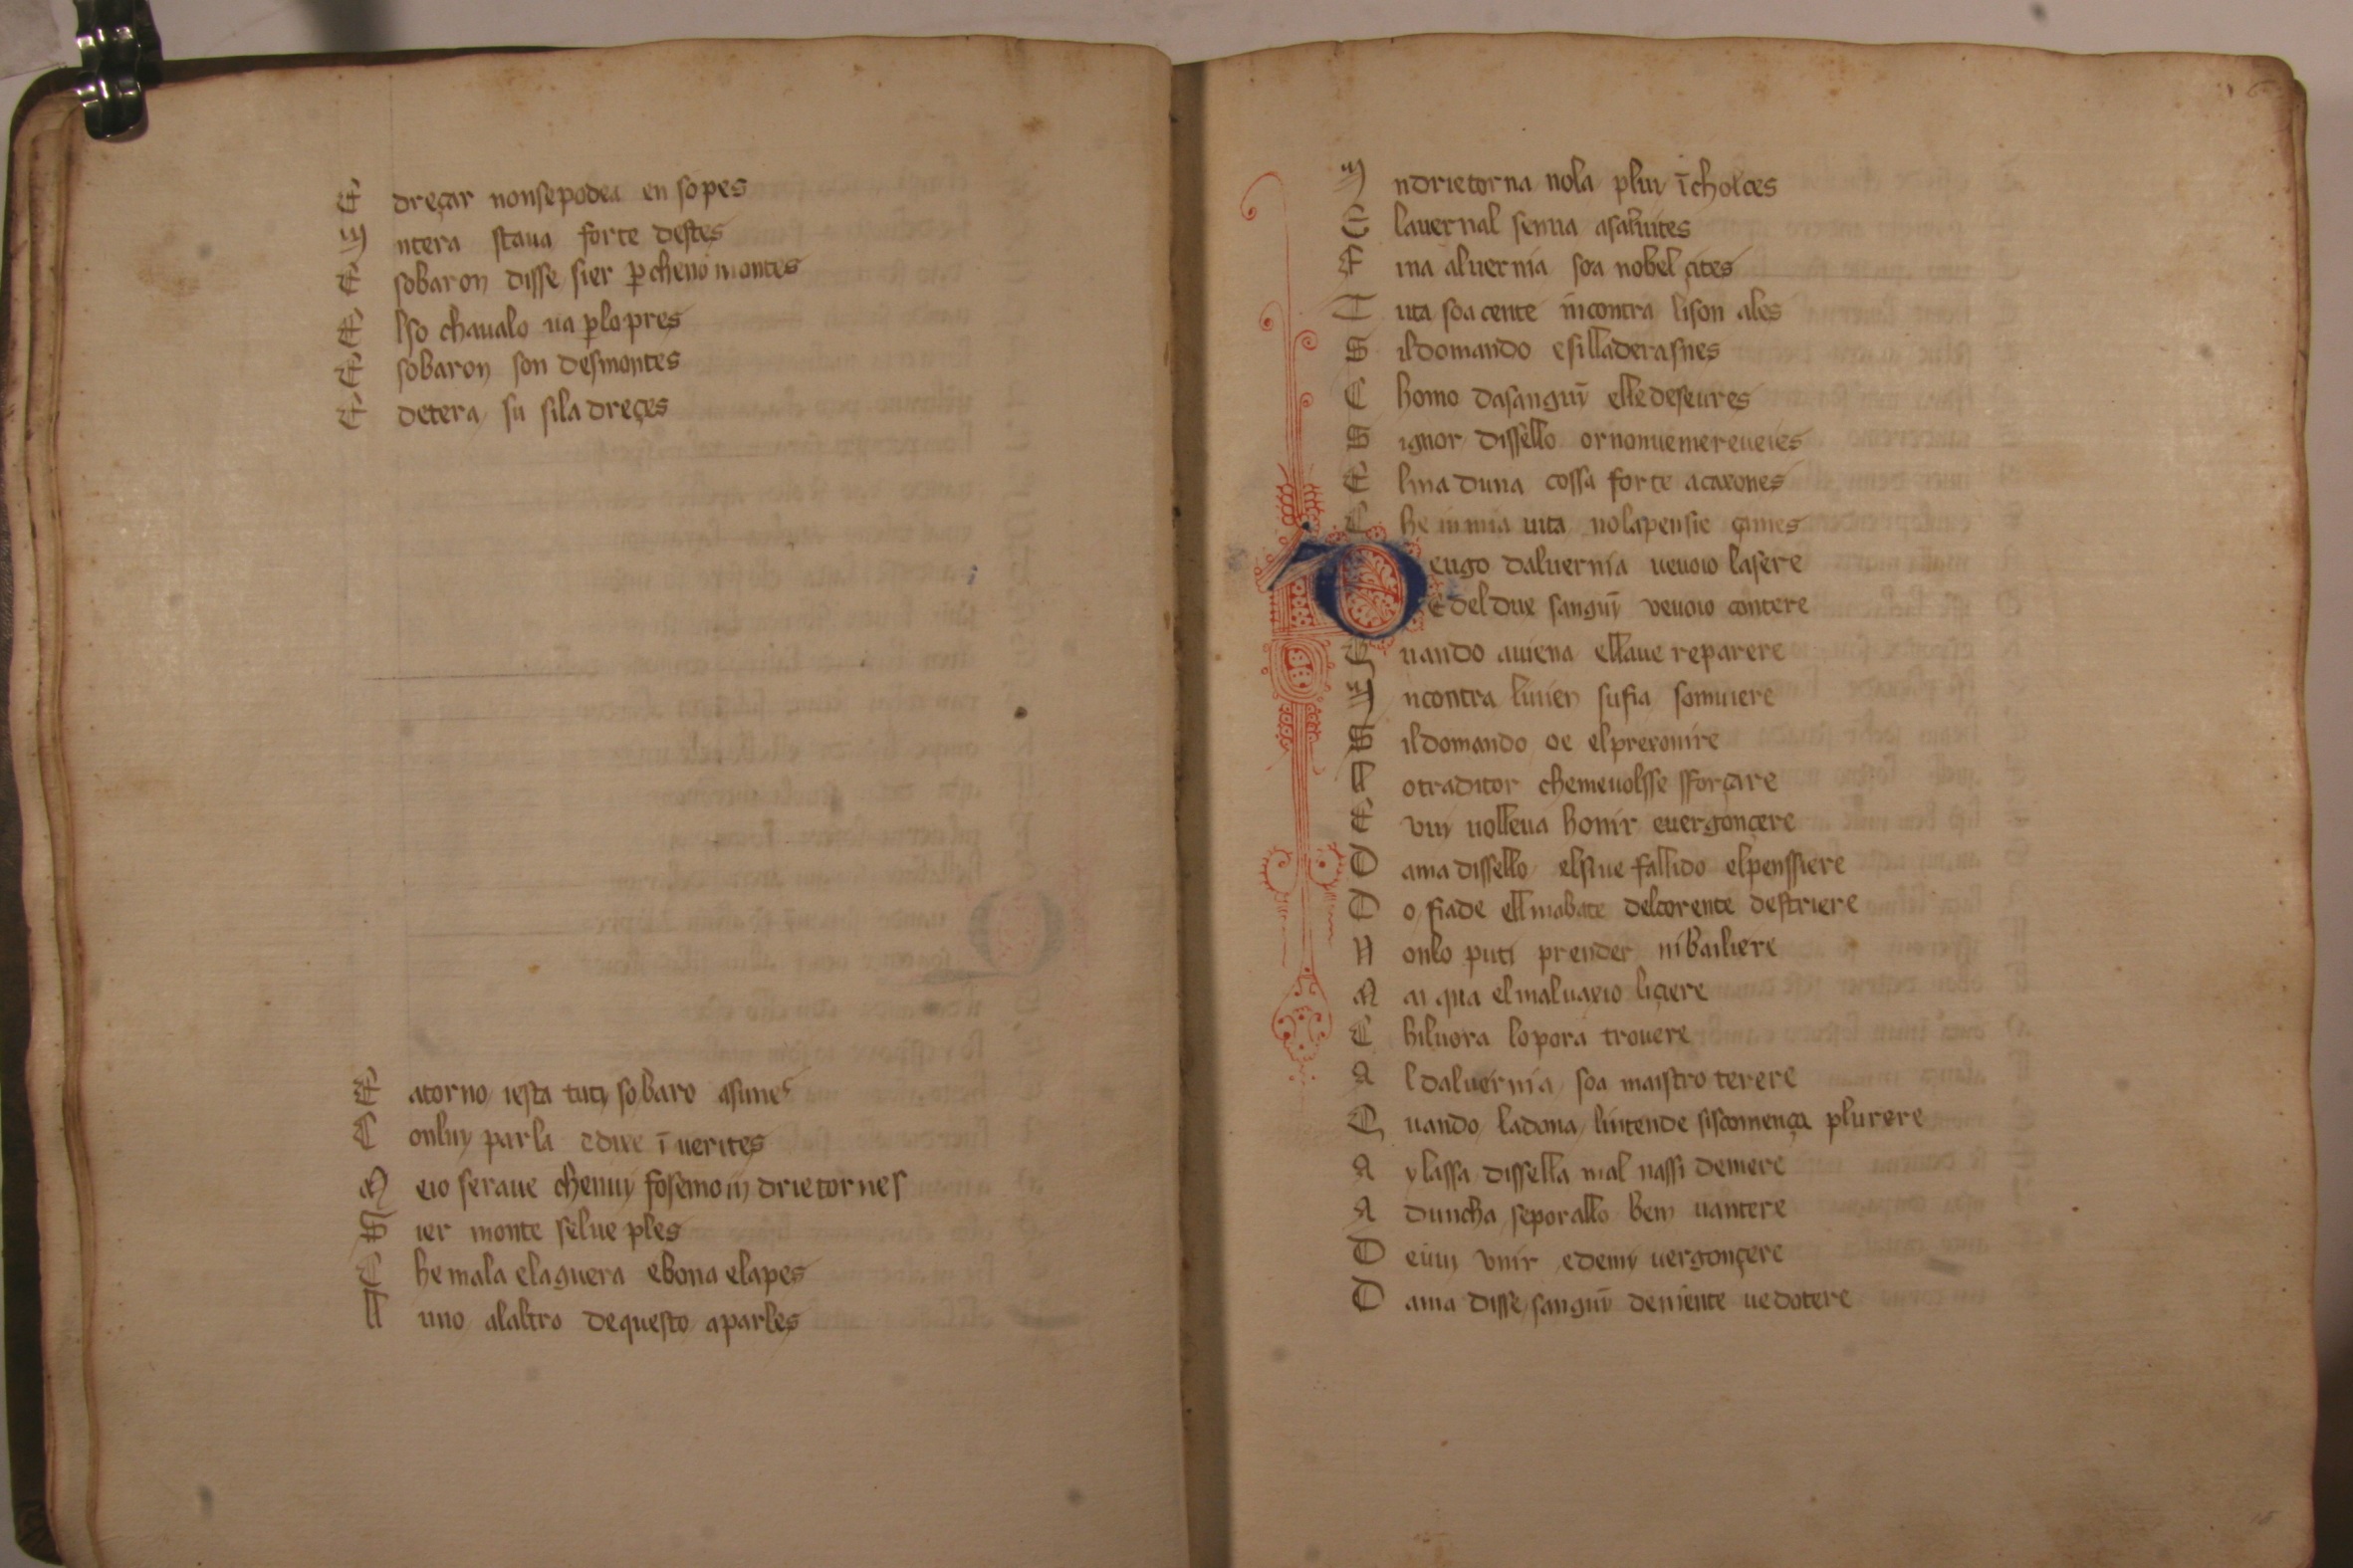 E dreçar nonsepodea en sopes
In ntera staua forte destes
E sobaron disse sier p̱ cheno montes
E lso chaualo ua p̱lo pres
E sobaron son desmontes
E detera su sila dreçes
E atorno iesta tuti so baro asunes
C onluy parla edixe ī uerites
M eio seraue chenuy fosemo in drietornes
S ier monte selue ples
C he mala elaguera ebona elapes
L uno alaltro dequesto aparles
I ndrietorna nola pluy ī choltes
E lauernal senua asaluites
E ina aluernia soa nobel çites
T uta soa cente incontra lison ales
S ildomando esilladerasnes
C homo dasanguī elle deseures
S ignor dissello ornonuemereueies
E lina duna cossa forte acaxones
C he in mia uita nolapensie çames
D eugo daluernia ueuoio lasere
E del dux sanguī veuoio contere
Q uando auiena ellaue reparere
I ncontra liuien sufia somuiere
S ildomando oe elprexonire
L otraditor chemeuolsse sforçare
E vuy uolleua honir euergonçere
D ama dissello elsiue fallido elpenssiere
D o fiade ell mabate delcorente destriere
N onlo puti prender ni bailiere
M ai qua elmaluaxio liçere
C hiluora lo pora trouere
A l daluernia soa maistro terere
Q uando ladona lintende siscomença plurere
A y lassa dissella mal nassi demere
A duncha seporallo ben uantere
D euuy vnir edemy uergonçere
D ama disse sanguī deniente uedotere